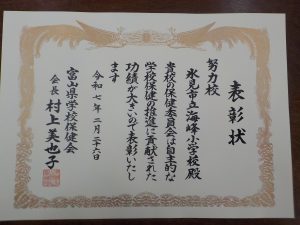 表彰状
努力校
氷見市立海峰小学校殿
貴校の保健委員会は自主的な
学校保健の推進に貢献された
功績が大きいので表彰いたし
ます
令和七年二月二十六日
富山県学校保健会
会長 村上美也子